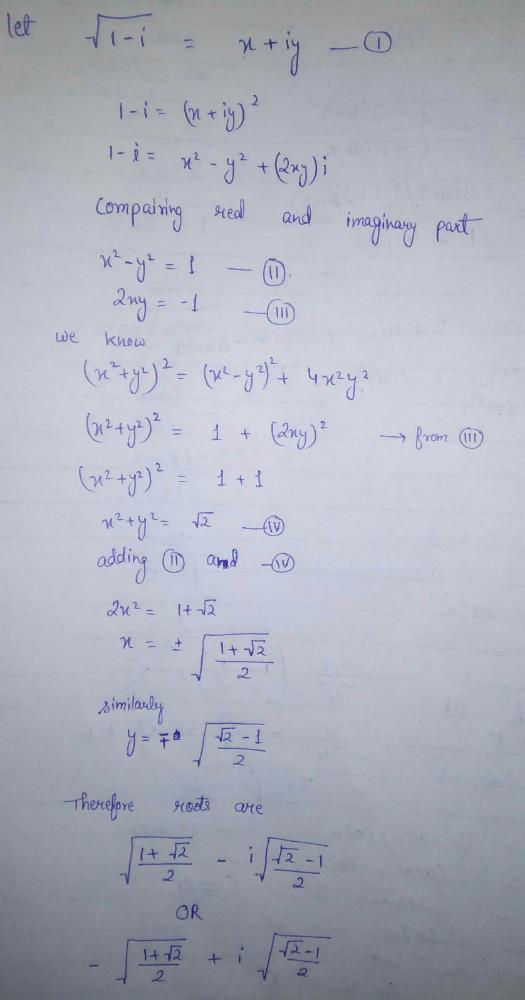 let √(1-i) = x + iy — (I)
1-i = (x+iy)²
1-i = x² - y² + (2xy)i
Compairing real and imaginary part
x² - y² = 1 — (II).
2xy = -1 — (III)
we know
(x²+y²)² = (x²-y²)² + 4x²y²
(x²+y²)² = 1 + (2xy)² → from (III)
(x²+y²)² = 1 + 1
x²+y² = √2 — (IV)
adding (II) and -(IV)
2x² = 1+√2
x = ± √((1+√2)/2)
similarly
y = ∓ √((√2-1)/2)
Therefore roots are
√((1+√2)/2) - i√((√2-1)/2)
OR
- √((1+√2)/2) + i √((√2-1)/2)